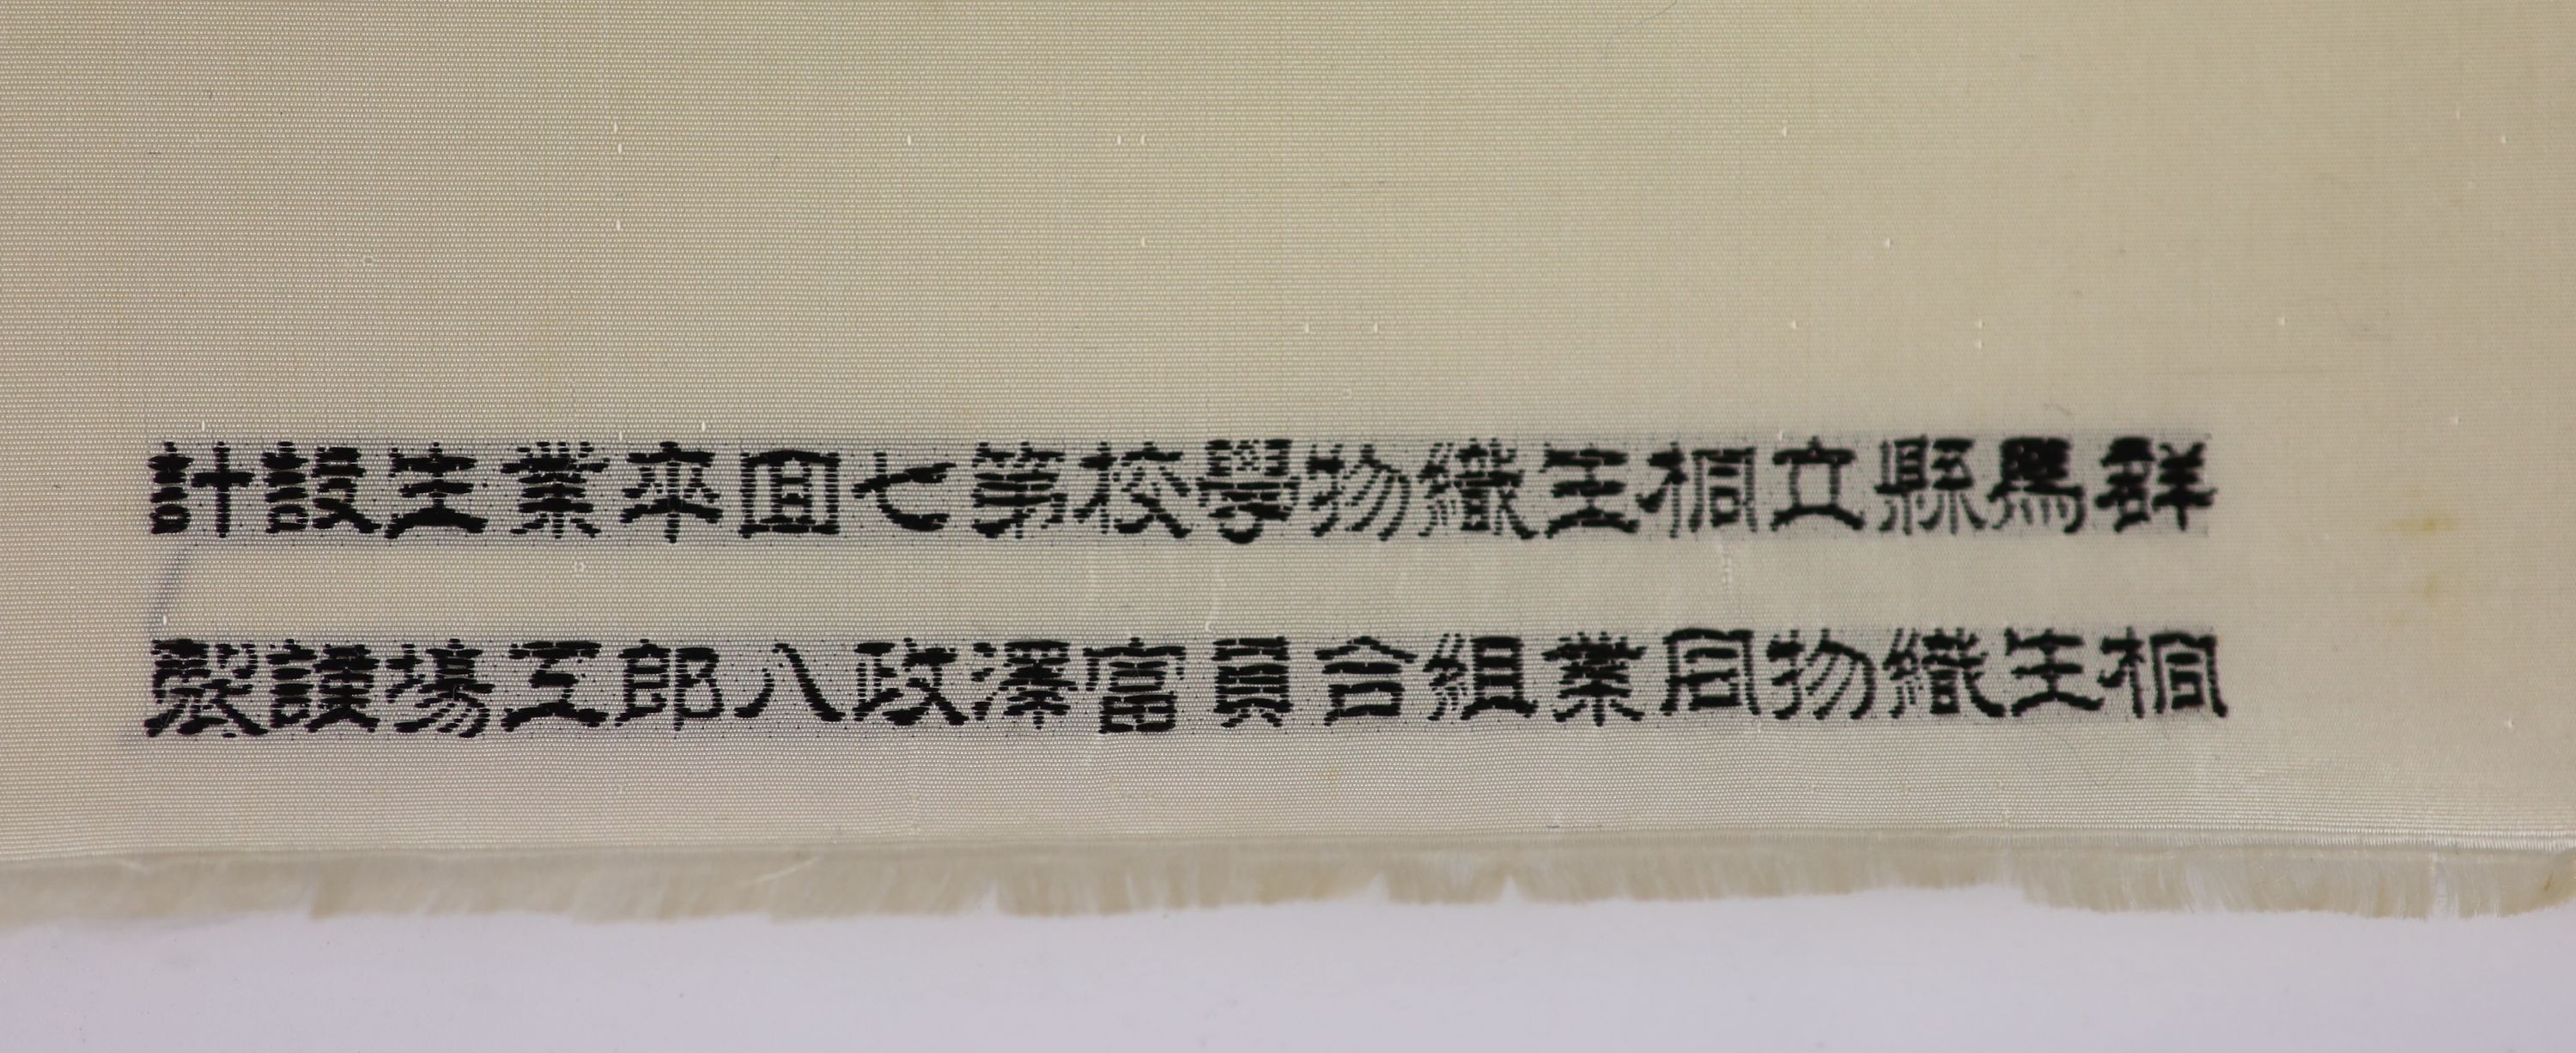 群馬縣立桐生織物學校第七回卒業生設計
桐生織物同業組合員富澤政八郎工場謹製